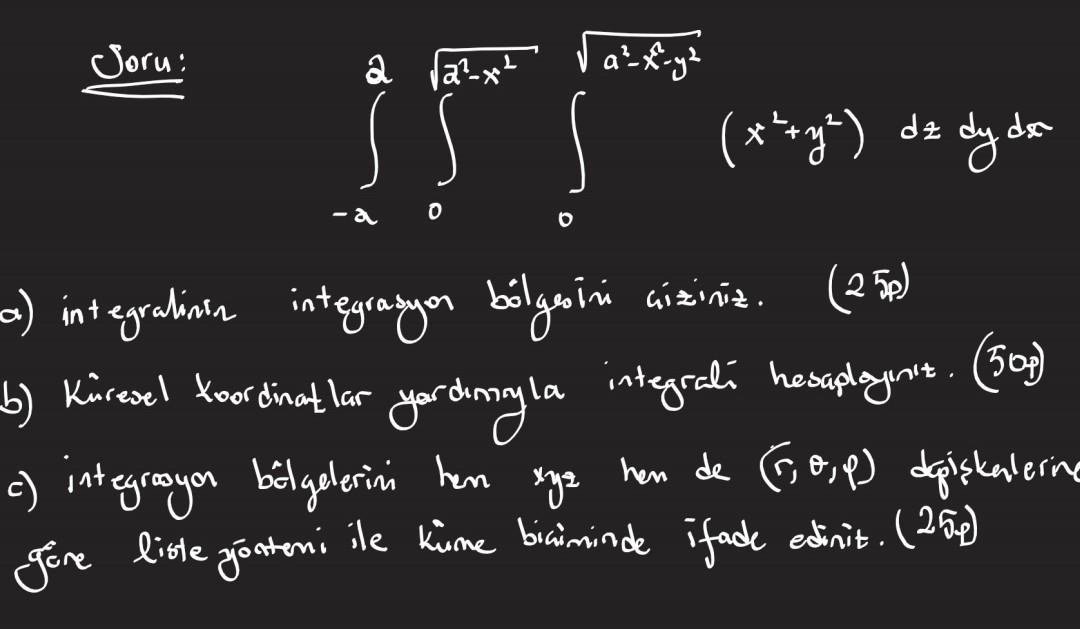 Soru:
∫_{-a}^{a} ∫_{0}^{√(a²-x²)} ∫_{0}^{√(a²-x²-y²)} (x²+y²) dz dy dx
a) integralinin integrasyon bölgesini çiziniz. (25p)
b) Küresel koordinatlar yardımıyla integrali hesaplayınız. (50p)
c) integrasyon bölgelerini hem xyz hem de (r, θ, φ) değişkenlerine
göre liste yöntemi ile küme biçiminde ifade ediniz. (25p)